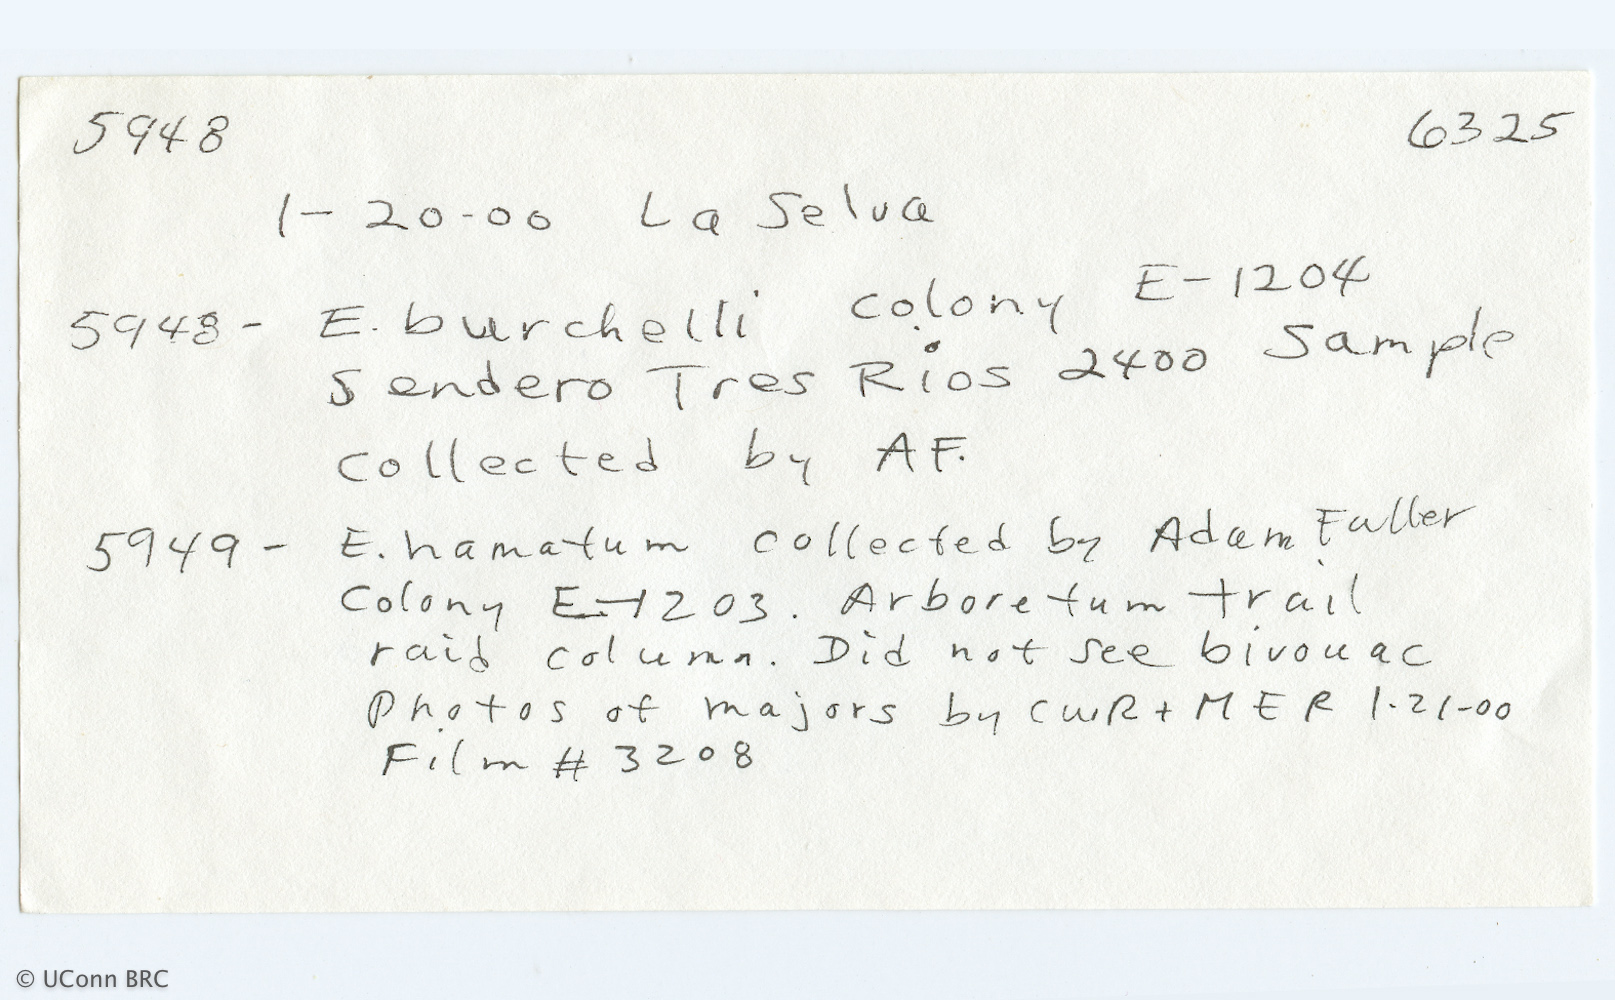 5948 6325
1-20-00 La Selva
5948- E. burchelli colony E-1204
Sendero Tres Rios 2400 Sample
collected by AF.
5949- E. hamatum collected by Adam Fuller
Colony E-1203. Arboretum trail
raid column. Did not see bivouac
Photos of majors by CWR + MER 1-21-00
Film # 3208
© UConn BRC